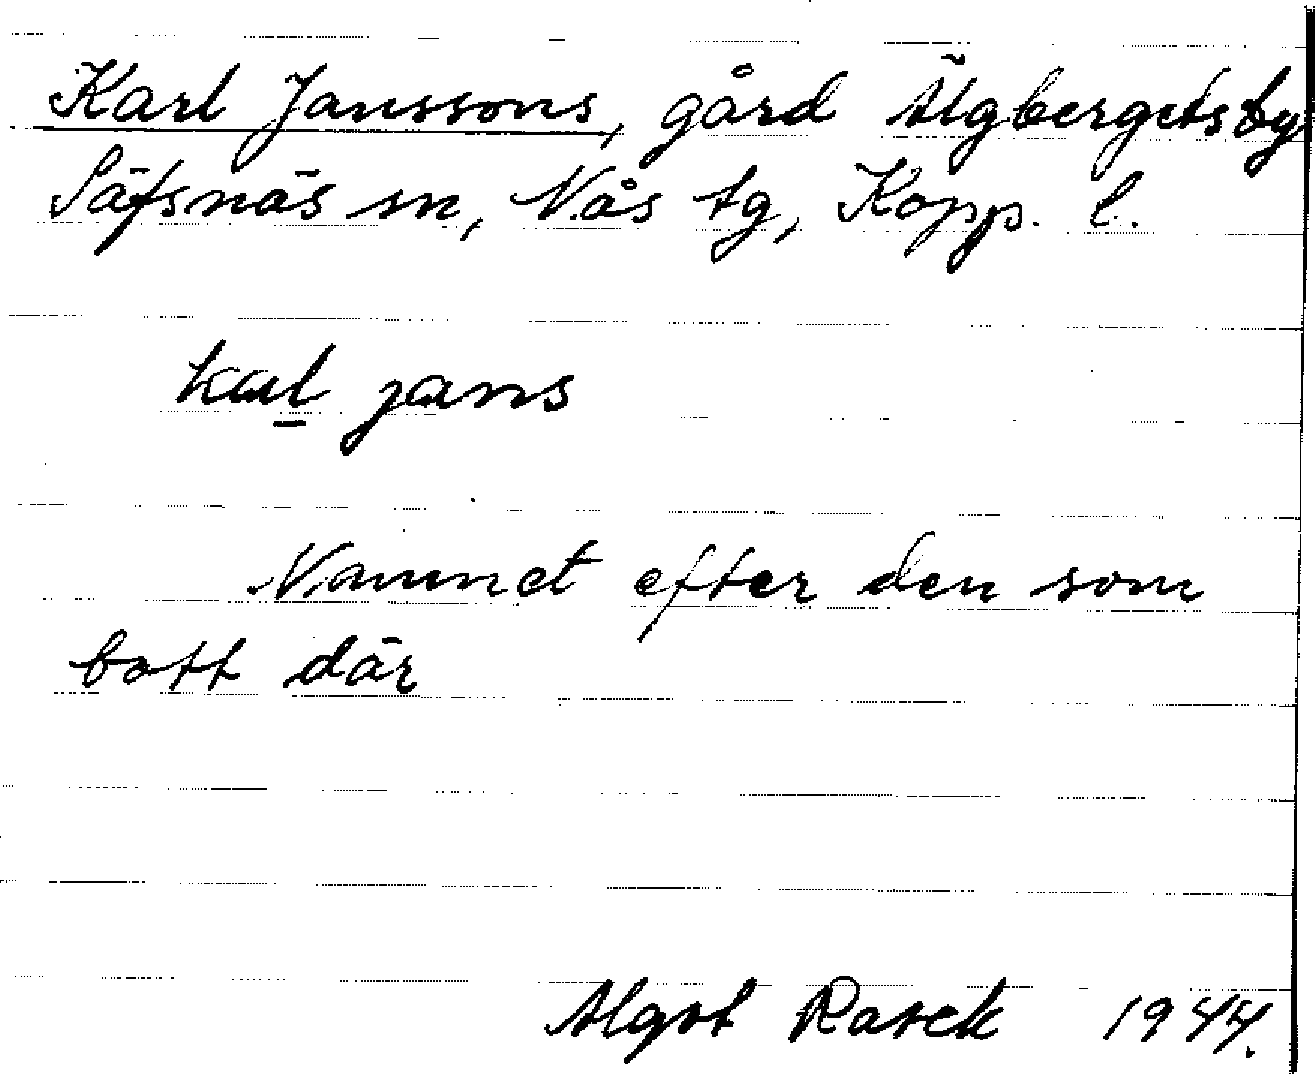 Karl Janssons, gård Älgbergets by
Säfsnäs sn, Nås tg, Kopp. l.
kal jans
Namnet efter den som
bott där
Algot Rasck 1944.